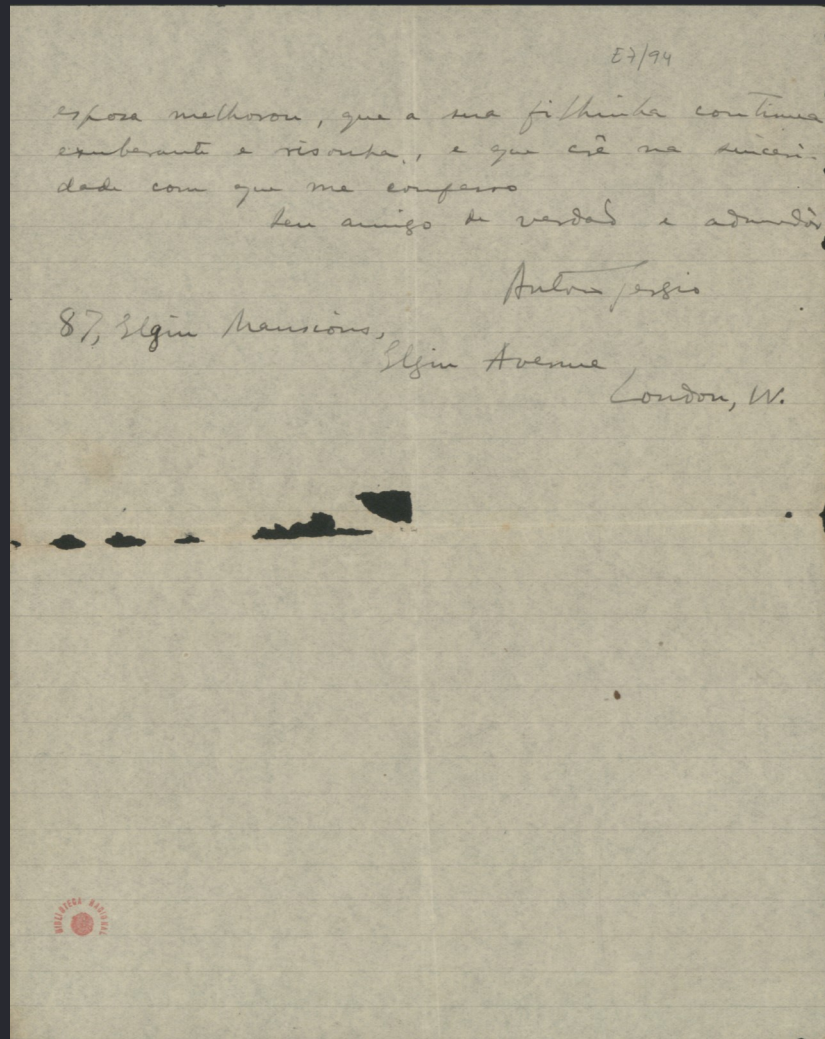 E7/94
esposa melhorou, que a sua filhinha continua
exuberante e risonha, e que crê na sinceri-
dade com que me confesso
seu amigo de verdade e admirador
Antonio Sergio
87, Elgin Mansions,
Elgin Avenue
London, W.
BIBLIOTECA NACIONAL